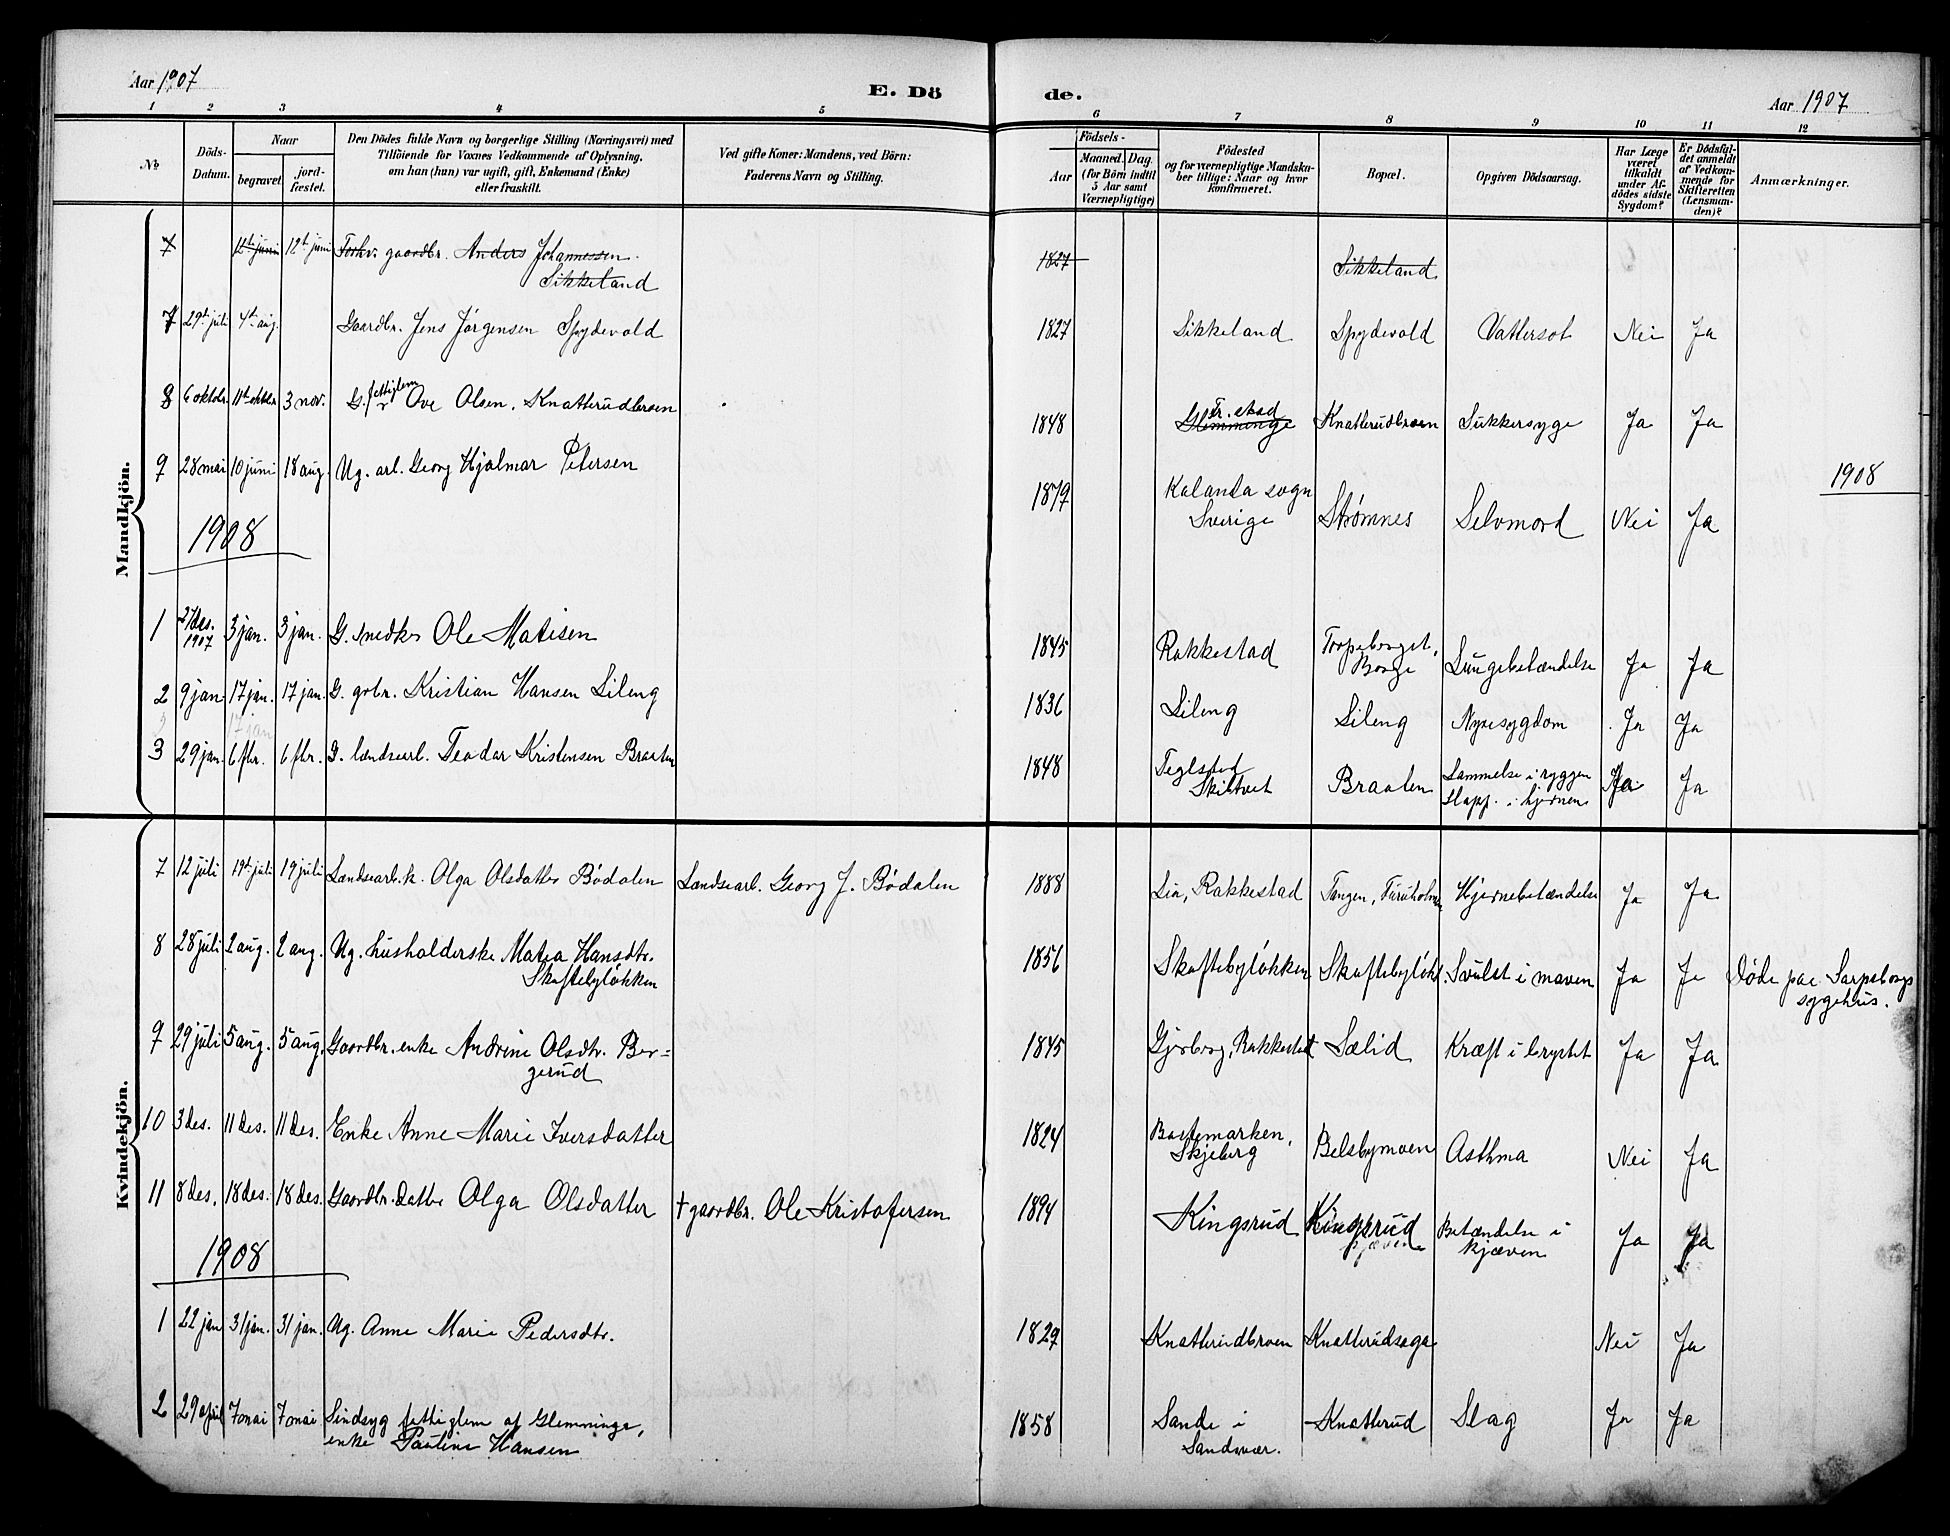 Aar 1907
E. Dö
de.
Aar 1907
1 2 3 4 5 6 7 8 9 10 11 12
No
Döds-
Datum.
Naar
begravet.
jord-
fæstet.
Den Dödes fulde Navn og borgerlige Stilling (Næringsvei) med
Tilföiende for Voxnes Vedkommende af Oplysning,
om han (hun) var ugift, gift, Enkemand (Enke)
eller fraskilt.
Ved gifte Koner: Mandens, ved Börn:
Faderens Navn og Stilling.
Födsels-
Aar
Maaned. Dag.
(for Börn indtil
5 Aar samt
Værnepligtige)
Födested
og for værnepligtige Mandska-
ber tillige: Naar og hvor
konfirmeret.
Bopæl.
Opgiven Dödsaarsag.
Har Læge
været
tilkaldt
under Af-
dödes sidste
Sygdom?
Er Dödsfal-
det anmeldt
af Vedkom-
mende for
Skifteretten
(Lensman-
den)?
Anmærkninger.
Mandkjön.
7 12te juni 12te juni Forhv. gaardbr. Anders Johannessen 1827 Sikkeland
Sikkeland
7 29de juli 4de aug. Gaardbr. Jens Jørgensen Spydevold 1827 Sikkeland Spydevold Vattersot Nei Ja
8 6 oktobr. 11te oktbr. 3 nov. G. fattiglem Ove Olsen, Knatterudbroen 1848 Glemminge Fr.stad Knatterudbroen Sukkersyge Ja Ja
9 28 mai 10 juni 18 aug. Ug. arb. Georg Hjalmar Petersen 1879 Kalanda sogn
Sverige Strømnes Selvmord Nei Ja
1908
1908
1 27 des.
1907 3 jan. 3 jan. G. snedker Ole Matisen 1845 Rakkestad Torpeberget,
Borge Lungebetændelse Ja Ja
2 9 jan. 17 jan. 17 jan. G. grbr. Kristian Hansen Lileng 1836 Lileng Lileng Nyresygdom Ja Ja
17 jan
3 29 jan. 6 fbr. 6 fbr. G. landsearb. Teodor Kristensen Braaten 1848 Teglsted
Skiptvet Braaten Lammelse i ryggen
slapp. i hjernen Ja Ja
Kvindekjön.
7 12 juli 19de juli 19 juli Landsearb.k. Olga Olsdatter Bödalen Landsearb. Georg J. Bödalen 1888 Lia, Rakkestad Tangen, Furuholmen Hjernebetændelse Ja Ja
8 28 juli 2 aug. 2 aug. Ug. husholderske Matea Hansdtr.
Skaftebyløkken 1856 Skaftebyløkken Skaftebyløk. Svulst i maven Ja Ja Døde paa Sarpsborgs
sygehus.
9 29 juli 5 aug. 5 aug. Gaardbr. enke Andrine Olsdtr. Ber=
gerud 1845 Gjerborg, Rakkestad Sælid Kræft i brystet Ja Ja
10 3 des. 11 des. 11 des. Enke Anne Marie Iversdatter 1824 Bøstemarken,
Skjeberg Belsbymoen Asthma Nei Ja
11 8 des. 18 des. 18 des. Gaardbr. datter Olga Olsdatter † gaardbr. Ole Kristofersen 1894 Kingsrud Kingsrud Betændelse i
kjæven Ja Ja
1908
1 22 jan 31 jan. 31 jan. Ug. Anne Marie Pedersdtr. 1829 Knatterudbroen Knatterudsaga Nei Ja
2 29 april 7 mai 7 mai Sindsyg fattiglem af Glemminge,
enke Pauline Hansen 1858 Sande i
Sandsvær. Knatterud Slag Ja Ja